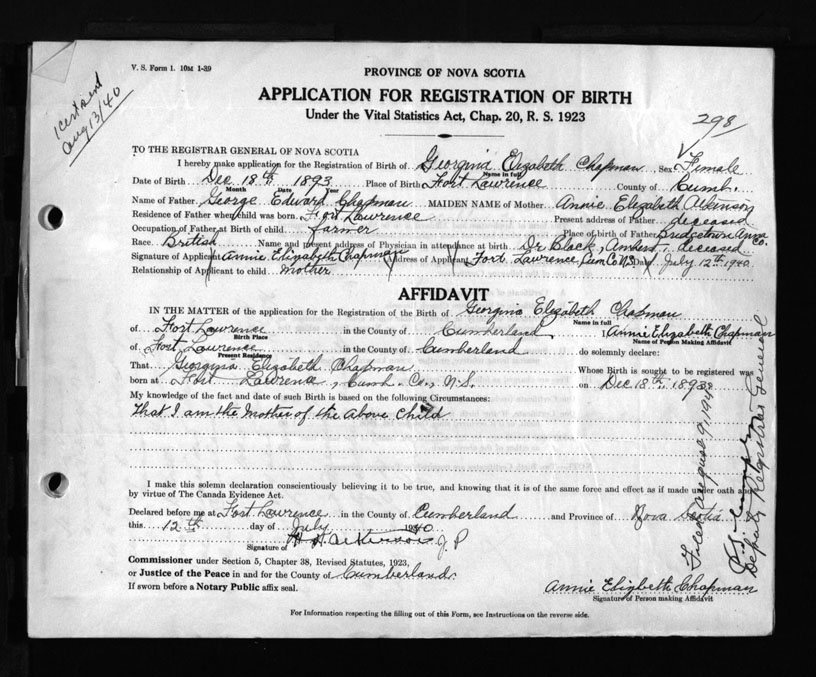 V. S. Form 1. 10M 1-39
Aug 13/40
PROVINCE OF NOVA SCOTIA
APPLICATION FOR REGISTRATION OF BIRTH
Under the Vital Statistics Act, Chap. 20, R. S. 1923
298
TO THE REGISTRAR GENERAL OF NOVA SCOTIA
I hereby make application for the Registration of Birth of Georgina Elizabeth Chapman Sex Female
Name in full
Date of Birth Dec 18th 1893 Place of Birth Fort Lawrence County of Cumb.
Month Date Year
Name of Father George Edward Chapman MAIDEN NAME of Mother Annie Elizabeth Atkinson
Residence of Father when child was born Fort Lawrence Present address of Father deceased
Occupation of Father at Birth of child farmer Place of birth of Father Bridgetown Anna Co.
Race British Name and present address of Physician in attendance at birth Dr Black, Amherst, deceased
Signature of Applicant Annie Elizabeth Chapman Address of Applicant Fort Lawrence, Cum Co N.S. Date July 12th 1940
Relationship of Applicant to child mother
AFFIDAVIT
IN THE MATTER of the application for the Registration of the Birth of Georgina Elizabeth Chapman
Name in full
of Fort Lawrence in the County of Cumberland Annie Elizabeth Chapman
Birth Place Name of Person Making Affidavit
of Fort Lawrence in the County of Cumberland do solemnly declare:
Present Residence
That Georgina Elizabeth Chapman Whose Birth is sought to be registered was
born at Fort Lawrence, Cumb. Co., N.S. on Dec 18th, 1893
My knowledge of the fact and date of such Birth is based on the following Circumstances:
That I am the Mother of the Above Child
I make this solemn declaration conscientiously believing it to be true, and knowing that it is of the same force and effect as if made under oath and
by virtue of The Canada Evidence Act.
Declared before me at Fort Lawrence in the County of Cumberland and Province of Nova Scotia
this 12th day of July 1940
Signature of Atkinson J P
Commissioner under Section 5, Chapter 38, Revised Statutes, 1923,
or Justice of the Peace in and for the County of Cumberland.
If sworn before a Notary Public affix seal.
Annie Elizbeth Chapman
Signature of Person making Affidavit
For Information respecting the filling out of this Form, see Instructions on the reverse side.
Filed August 9, 1940
Deputy Registrar General